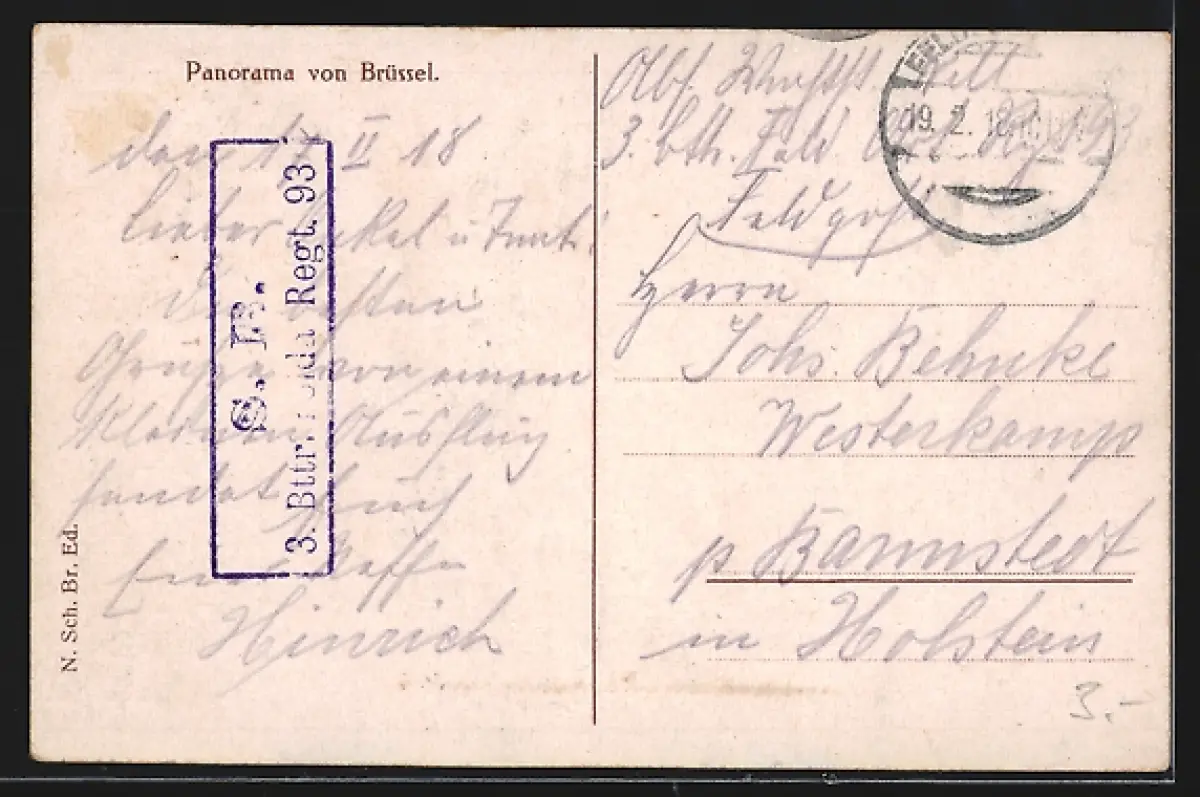 Panorama von Brüssel.
den 17 II 18
Lieber Onkel u Tante!
Die besten
Grüße von einem
kleinen Ausflug
sendet Euch
Euer Neffe
Hinrich
S. B.
3. Bttr. Felda Regt. 93
N. Sch. Br. Ed.
Abs.
3. Bttr. Feld Art. Rgt 93
Feldpost
19. 2. 18
Herrn
Johs. Behnke
Westerkamp
p Barmstedt
in Holstein
3.-